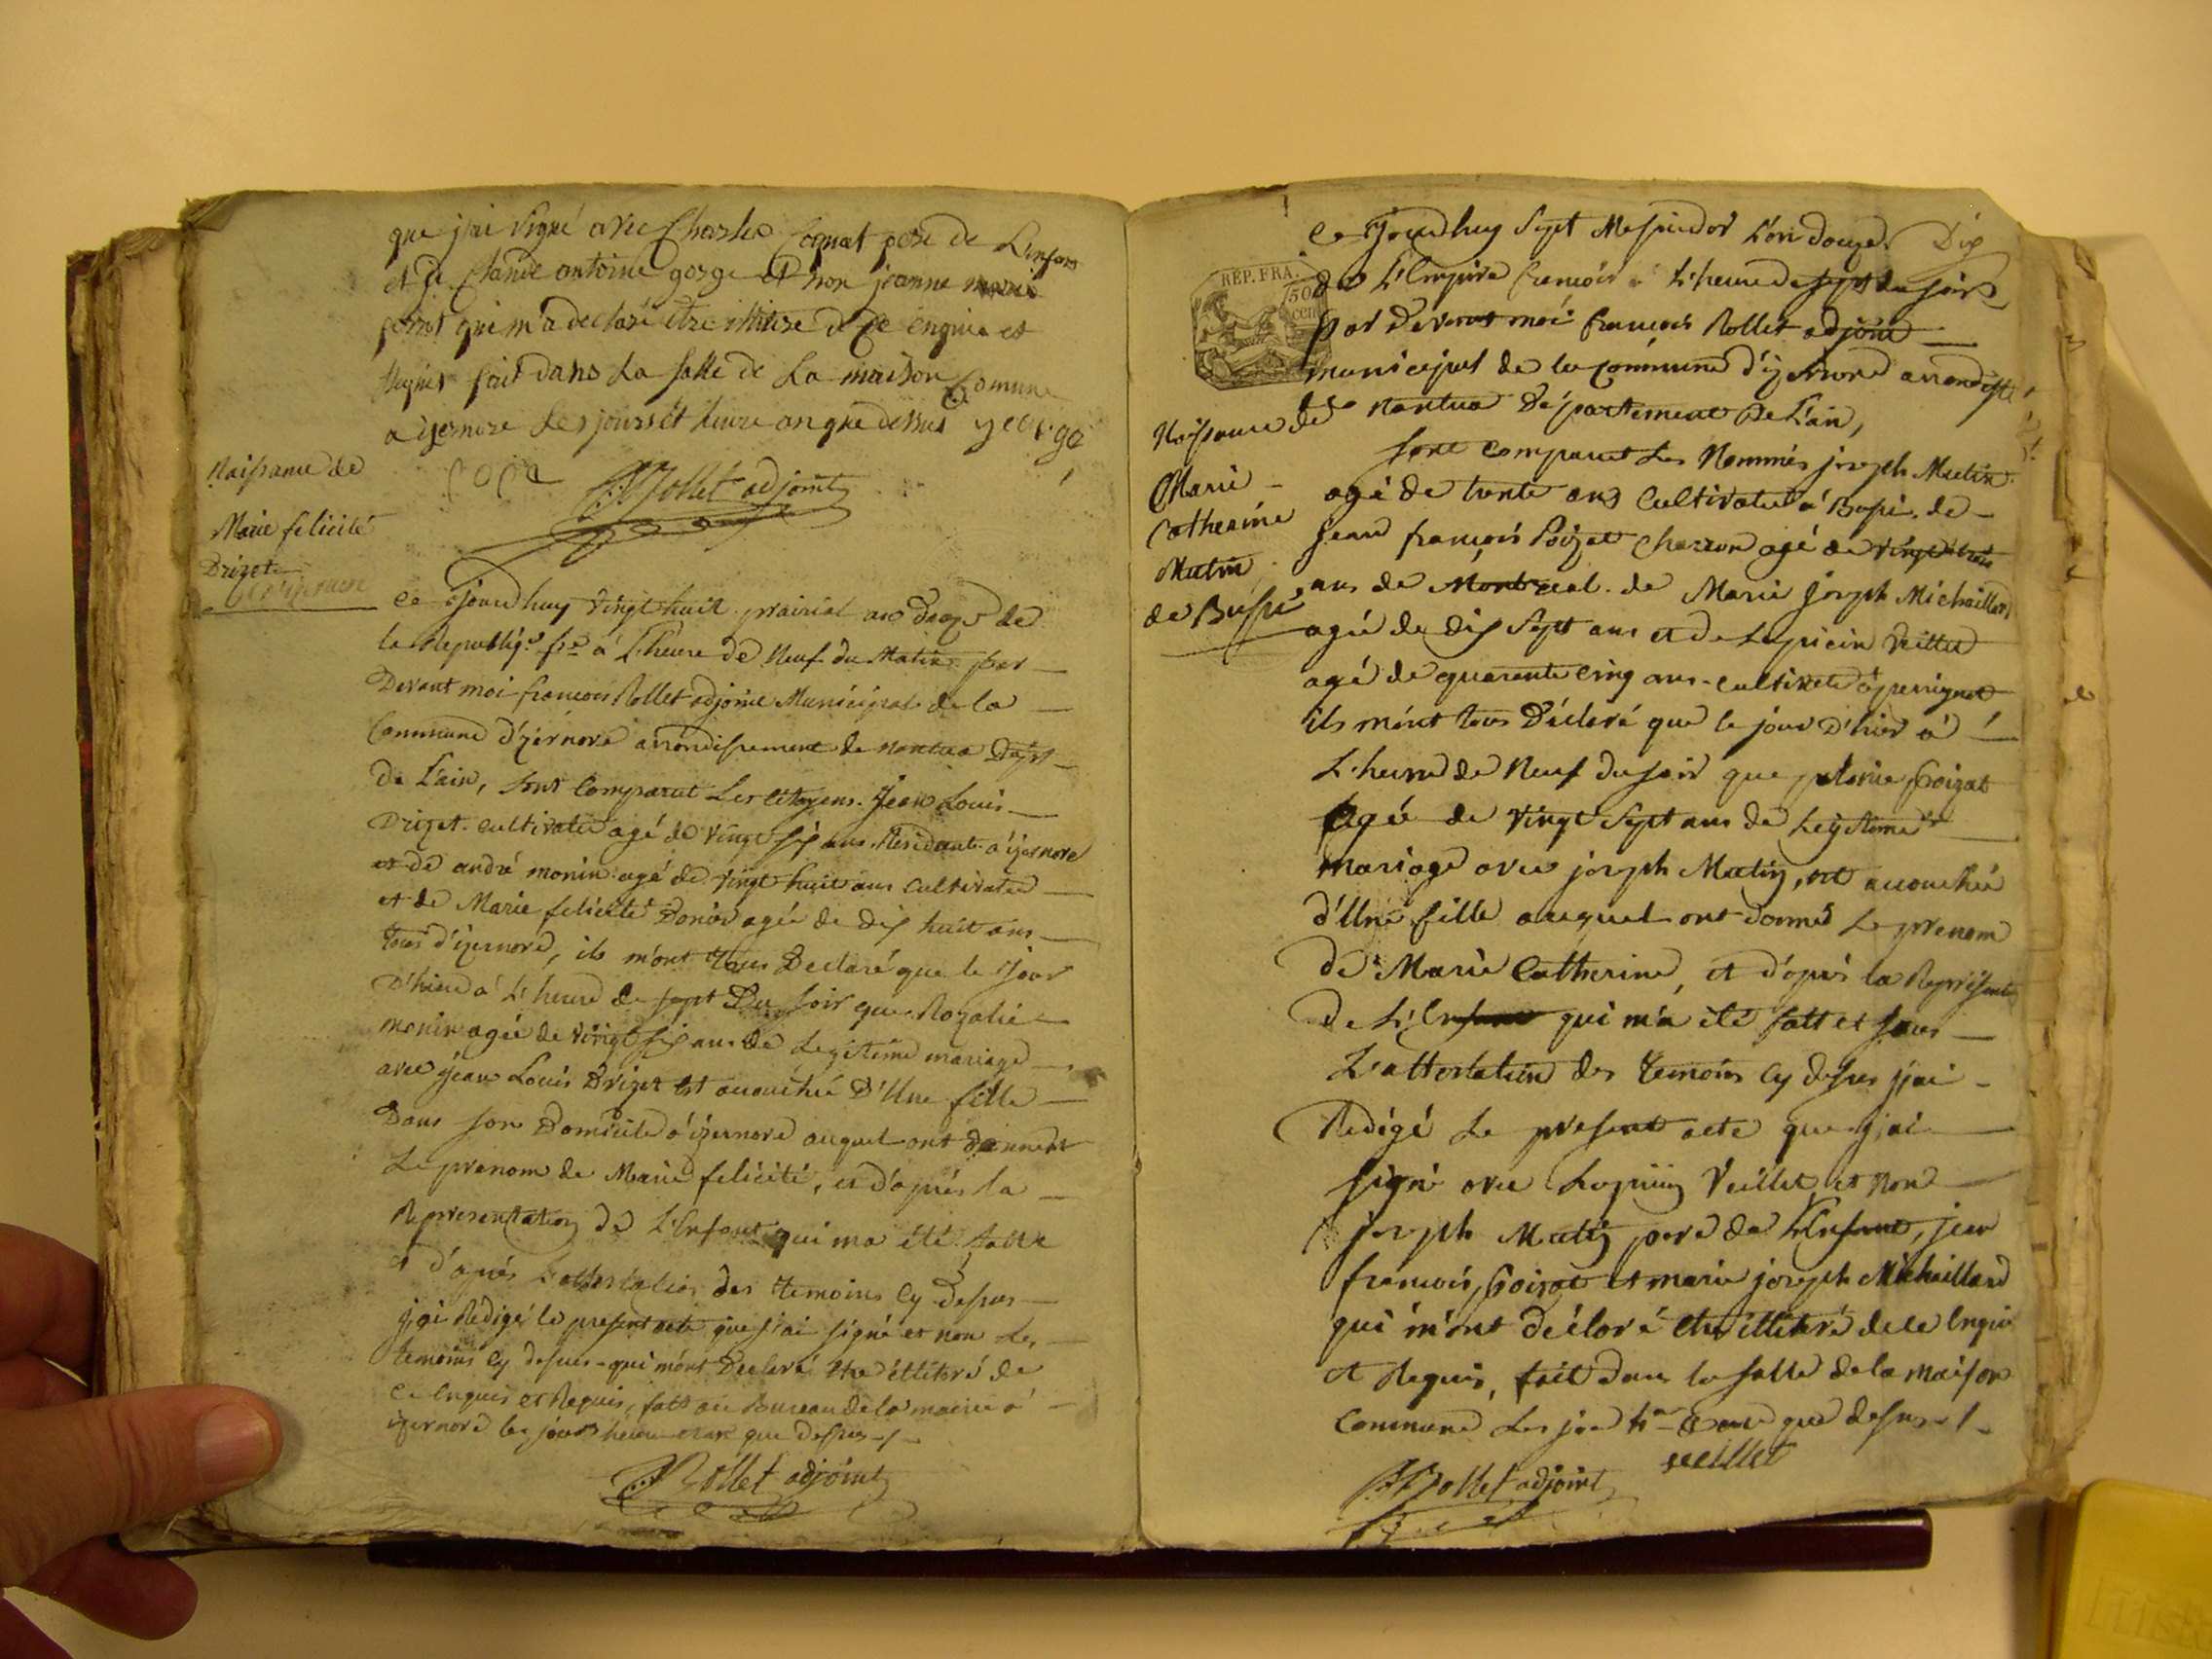 que j'ai signé avec Charles Cognat pere de L'enfan
et de Claude antoine gorge et non jeanne marie
poinst qui m'a declaré etre illitere de ce enquie et
Requis fait dans La salle de La maison Comune
a yzernore Les jours et heure an que dessus george
Rollet adjoint
Naissance de
Marie felicité
Drizet
D'izernore
Ce jourdhuy vingt huit prairial an douze de
la Republiq.e fse à L'heure de Neuf du Matin par
Devant moi francois Rollet adjoint Municipal de la
Commune d'izernore arrondissement de nantua Dept
de L'ain, sont Comparut Les citoyens Jean Louis
Drizet cultivateur agé de vingt six ans Residant a izernore
et de andré monin agé de vingt huit ans cultivateur
et de Marie felicité Donier agée de dix huit ans
tous d'izernore, ils m'ont tous Declaré que le jour
D'hier à L'heure de sept Du soir que Rozalie
monin agée de vingt six ans de Legitime mariage
avec jean Louis Drizet est accouchée D'Une fille
Dans son Domicile a izernore auquel ont donnent
Le prenom de Marie felicité, et d'après la
Representation de L'Enfant qui ma été fatte
et d'après L'attestation des temoins Cy dessus
j'ai Redigé le present acte que j'ai signé et non Les
temoins Cy dessus qui m'ont Declaré etre illitéré de
Ce Enquis et Requis, fatt au Bureau de la mairie a
izernore les jours heure et an que dessus
Rollet adjoint
REP. FRA.
50
cen
Ce jourdhuy Sept Messidor L'an douze Dix
de L'Empire francois à L'heure de sept du soir
par Devant moi francois Rollet adjoint
municipal de la Commune d'izernore arrondisst
de nantua Département De L'ain,
Naissance de
Marie
Catherine
Mutin
de Bussi
sont Comparut Les Nommés joseph Mutin
agé de trente ans Cultivateur a Bussi de
jean francois Poizat charron agé de vingt trois
ans de Montreal de Marie joseph Michaillard
agée de dix sept ans et de Lupicin Veillet
agé de quarente cinq ans cultivateur a perignat
ils m'ont tous Déclaré que le jour D'hier à
L'heure de Neuf du soir que Marie poizat
agée de vingt Sept ans de Legitime
mariage avec joseph Mutin, est accouchée
d'Une fille auquel ont donné Le prenom
de Marie Catherine, et d'après la Represent
de L'Enfant qui m'a été fatt et sous
L'attestation des temoins Cy dessus j'ai
Redigé Le present acte que j'ai
signé avec Lupicin Veillet et non
joseph Mutin pere de L'Enfant, jean
francois Poizat et marie joseph Michaillard
qui m'ont déclaré etre illitéré de ce Enquis
et Requis, fait dans la salle de la maison
Commune Les jour hre & an que dessus
veillet
Rollet adjoint